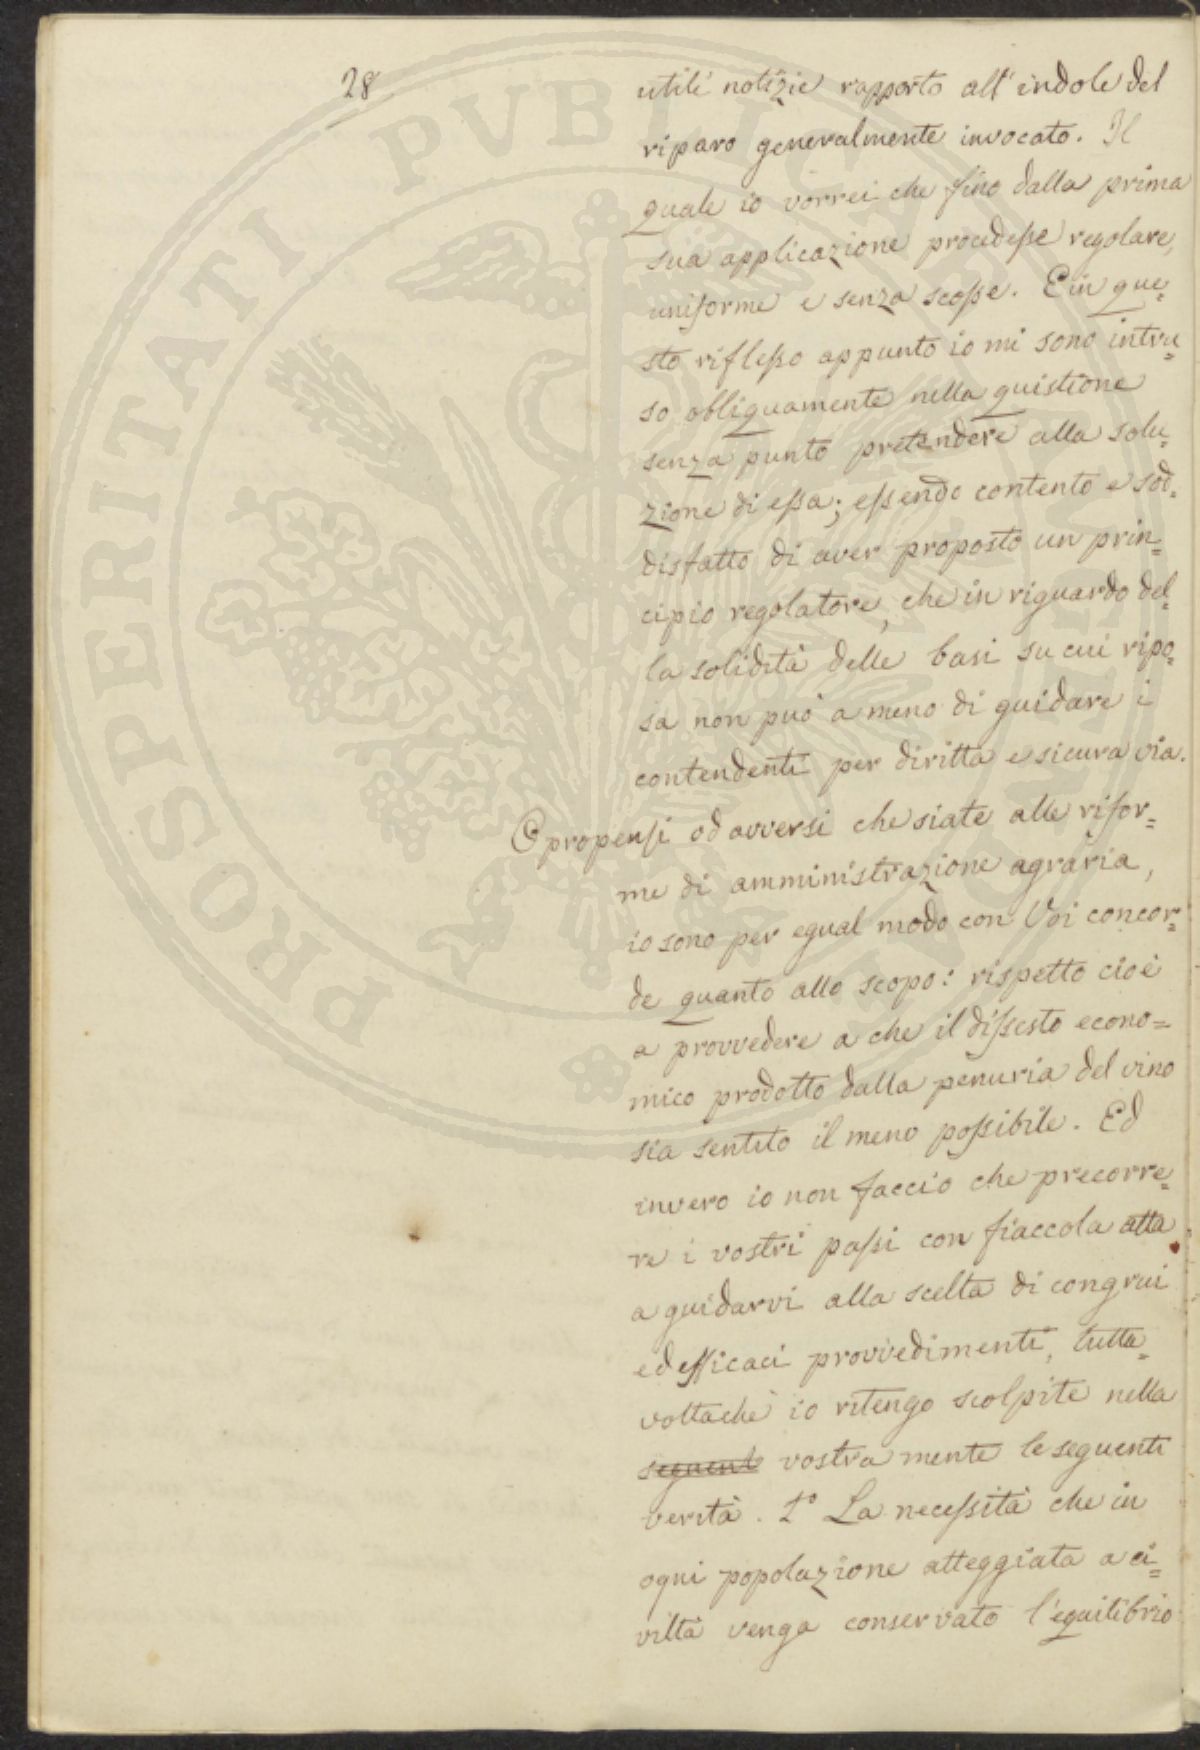 28
utili notizie rapporto all'indole del
riparo generalmente invocato. Il
quale io vorrei che fino dalla prima
sua applicazione procedesse regolare,
uniforme e senza scosse. E in que=
sto riflesso appunto io mi sono intru=
so obliquamente nella quistione
senza punto pretendere alla solu=
zione di essa; essendo contento e sod=
disfatto di aver proposto un prin=
cipio regolatore, che in riguardo del=
la solidità delle basi su cui ripo=
sa non può a meno di guidare i
contendenti per diritta e sicura via.
O propensi od avversi che siate alle rifor=
me di amministrazione agraria,
io sono per egual modo con Voi concor=
de quanto allo scopo: rispetto cioè
a provvedere a che il dissesto econo=
mico prodotto dalla penuria del vino
sia sentito il meno possibile. Ed
invero io non faccio che precorre=
re i vostri passi con fiaccola atta
a guidarvi alla scelta di congrui
ed efficaci provvedimenti, tutta=
voltachè io ritengo scolpite nella
seguent vostra mente le seguenti
verità. 1° La necessità che in
ogni popolazione atteggiata a ci=
viltà venga conservato l'equilibrio
PROSPERITATI PUBLICAE